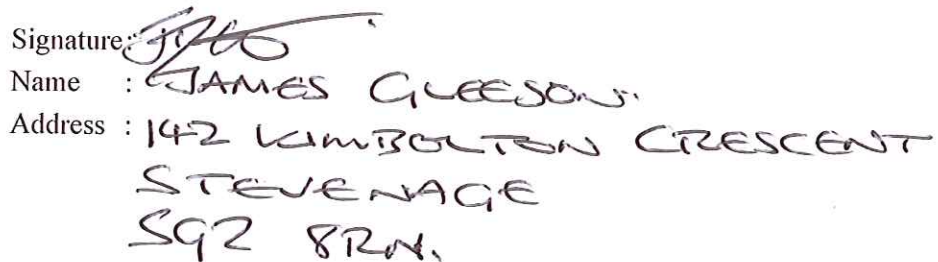 Signature:
Name : JAMES GLEESON.
Address : 142 KIMBOLTON CRESCENT
STEVENAGE
SG2 8RN.